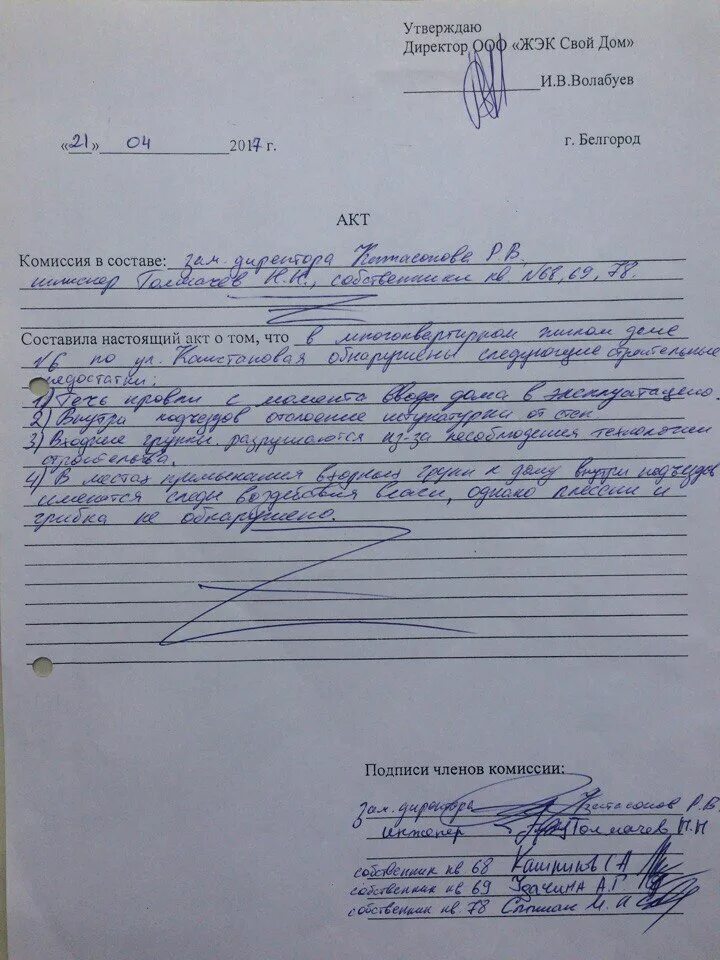 Утверждаю
Директор ООО «ЖЭК Свой Дом»
И.В.Волабуев
«21» 04 2017 г.
г. Белгород
АКТ
Комиссия в составе: зам. директора Китасопова Р.В.
инженер Толмачев Н.Н., собственники кв №68, 69, 78.
Составила настоящий акт о том, что в многоквартирном жилом доме
№6 по ул. Каштановая обнаружены следующие строительные
недостатки:
1) Течь кровли с момента ввода дома в эксплуатацию.
2) Внутри подъездов отслоение штукатурки от стен
3) Входные группы разрушаются из-за несоблюдения технологии
строительства.
4) В местах примыкания входных групп к дому внутри подъездов
имеются следы воздействия влаги, однако плесени и
грибка не обнаружено.
Подписи членов комиссии:
зам. директора Китасопов Р.В.
инженер Толмачев Н.Н
собственник кв 68
собственник кв 69 Удачина А.Г
собственник кв. 78